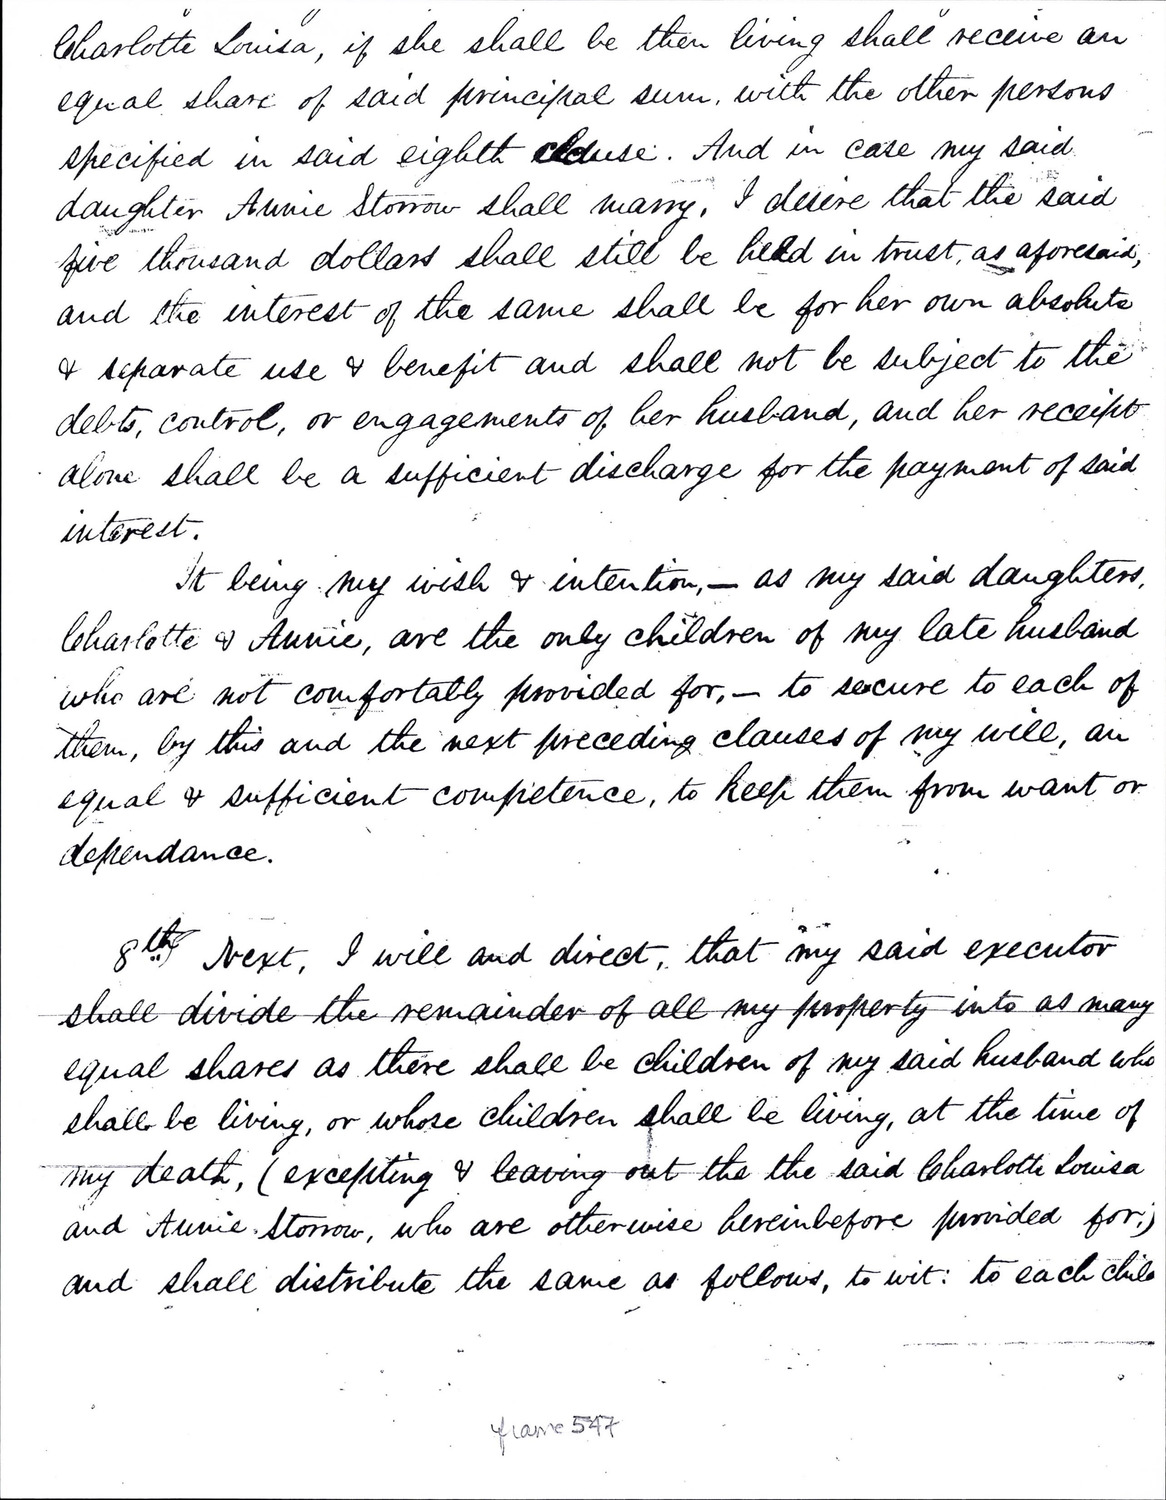 Charlotte Louisa, if she shall be then living shall receive an
equal share of said principal sum, with the other persons
specified in said eighth clause. And in case my said
daughter Annie Storrow shall marry, I desire that the said
five thousand dollars shall still be held in trust, as aforesaid,
and the interest of the same shall be for her own absolute
& separate use & benefit and shall not be subject to the
debts, control, or engagements of her husband, and her receipt
alone shall be a sufficient discharge for the payment of said
interest.
It being my wish & intention,— as my said daughters,
Charlotte & Annie, are the only children of my late husband
who are not comfortably provided for,— to secure to each of
them, by this and the next preceding clauses of my will, an
equal & sufficient competence, to keep them from want or
dependance.
8th Next, I will and direct, that my said executor
shall divide the remainder of all my property into as many
equal shares as there shall be children of my said husband who
shall be living, or whose children shall be living, at the time of
my death, (excepting & leaving out the the said Charlotte Louisa
and Annie Storrow, who are otherwise hereinbefore provided for;)
and shall distribute the same as follows, to wit: to each child
frame 547